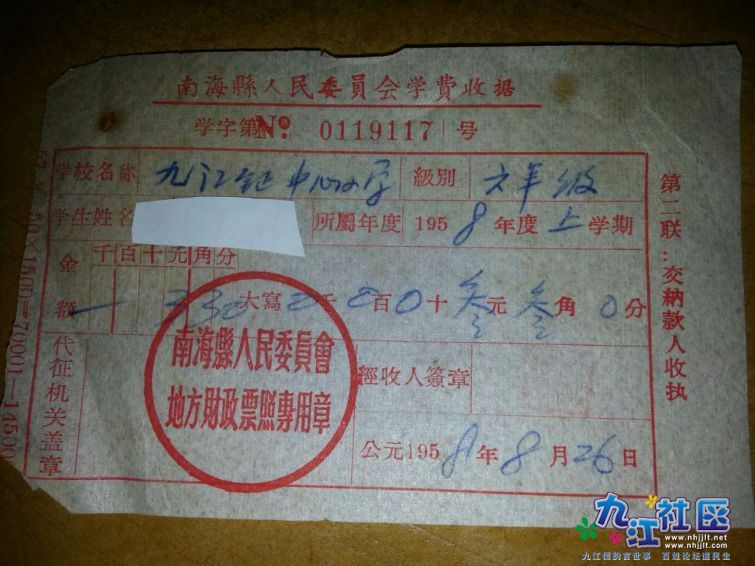 南海縣人民委員会学費收据
学字第№ 0119117 号
学校名称 九江鎮中心小学 級別 六年級
学生姓名 所屬年度 1958年度上学期
金額 千百十元角分
330 大寫 0千0百0十叁元叁角0分
南海縣人民委員會
地方財政票照專用章
代征机关盖章
經收人簽章
公元1958年8月26日
第二联:交納款人收执
50×1500=70001—14500
九江社区
www.nhjjlt.net
www.nhjjlt.com
九江儒韵言世事 百姓论坛道民生